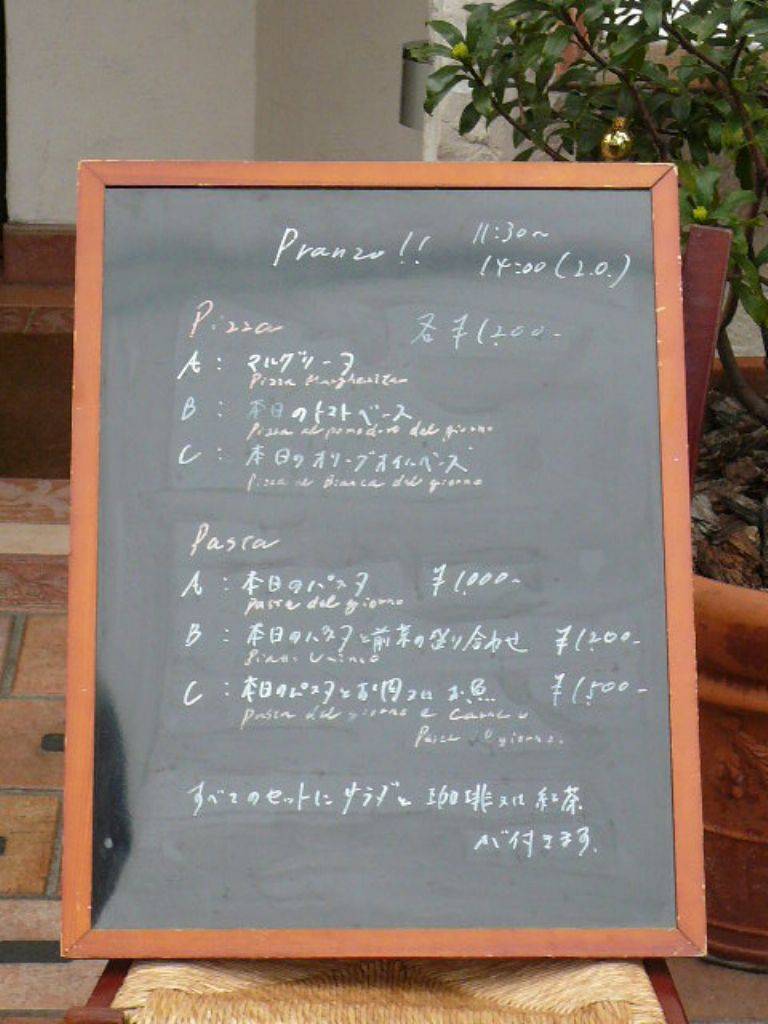 Pranzo!! 11:30~
14:00 (L.O.)
Pizza 各¥1,200-
A : マルゲリータ
Pizza Margherita
B : 本日のトマトベース
Pizza al pomodoro del giorno
C : 本日のオリーブオイルベース
Pizza al Bianca del giorno
Pasta
A : 本日のパスタ ¥1,000-
pasta del giorno
B : 本日のパスタと前菜の盛り合わせ ¥1,200-
Piatto Unico
C : 本日のパスタとお肉又はお魚 ¥1,500-
pasta del giorno e Carne o
Pesce del giorno.
すべてのセットにサラダと珈琲又は紅茶
が付きます。